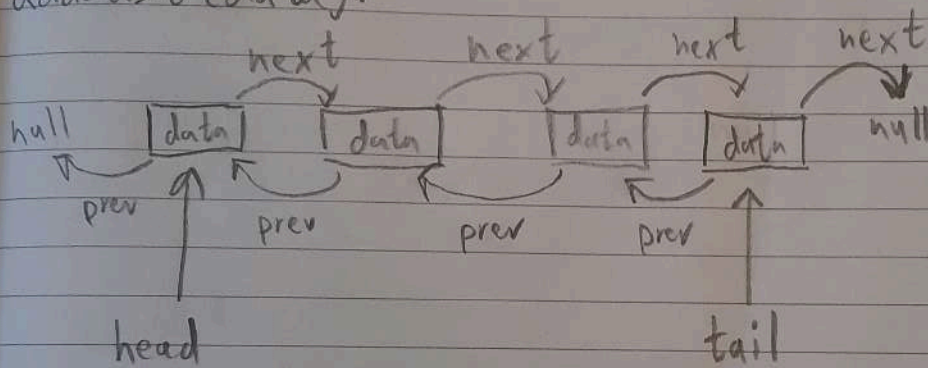 next next next next
null data data data data null
prev prev prev prev
head tail